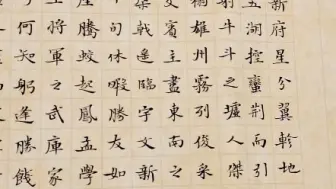 新府星分翼軫地
五湖控蠻荊而引
牛斗之墟人傑
雄州霧列俊采
賓主盡東南之
戟遙臨宇文新
旬休暇勝友如
騰蛟起鳳孟學
將軍之武庫家
何知躬逢勝餞